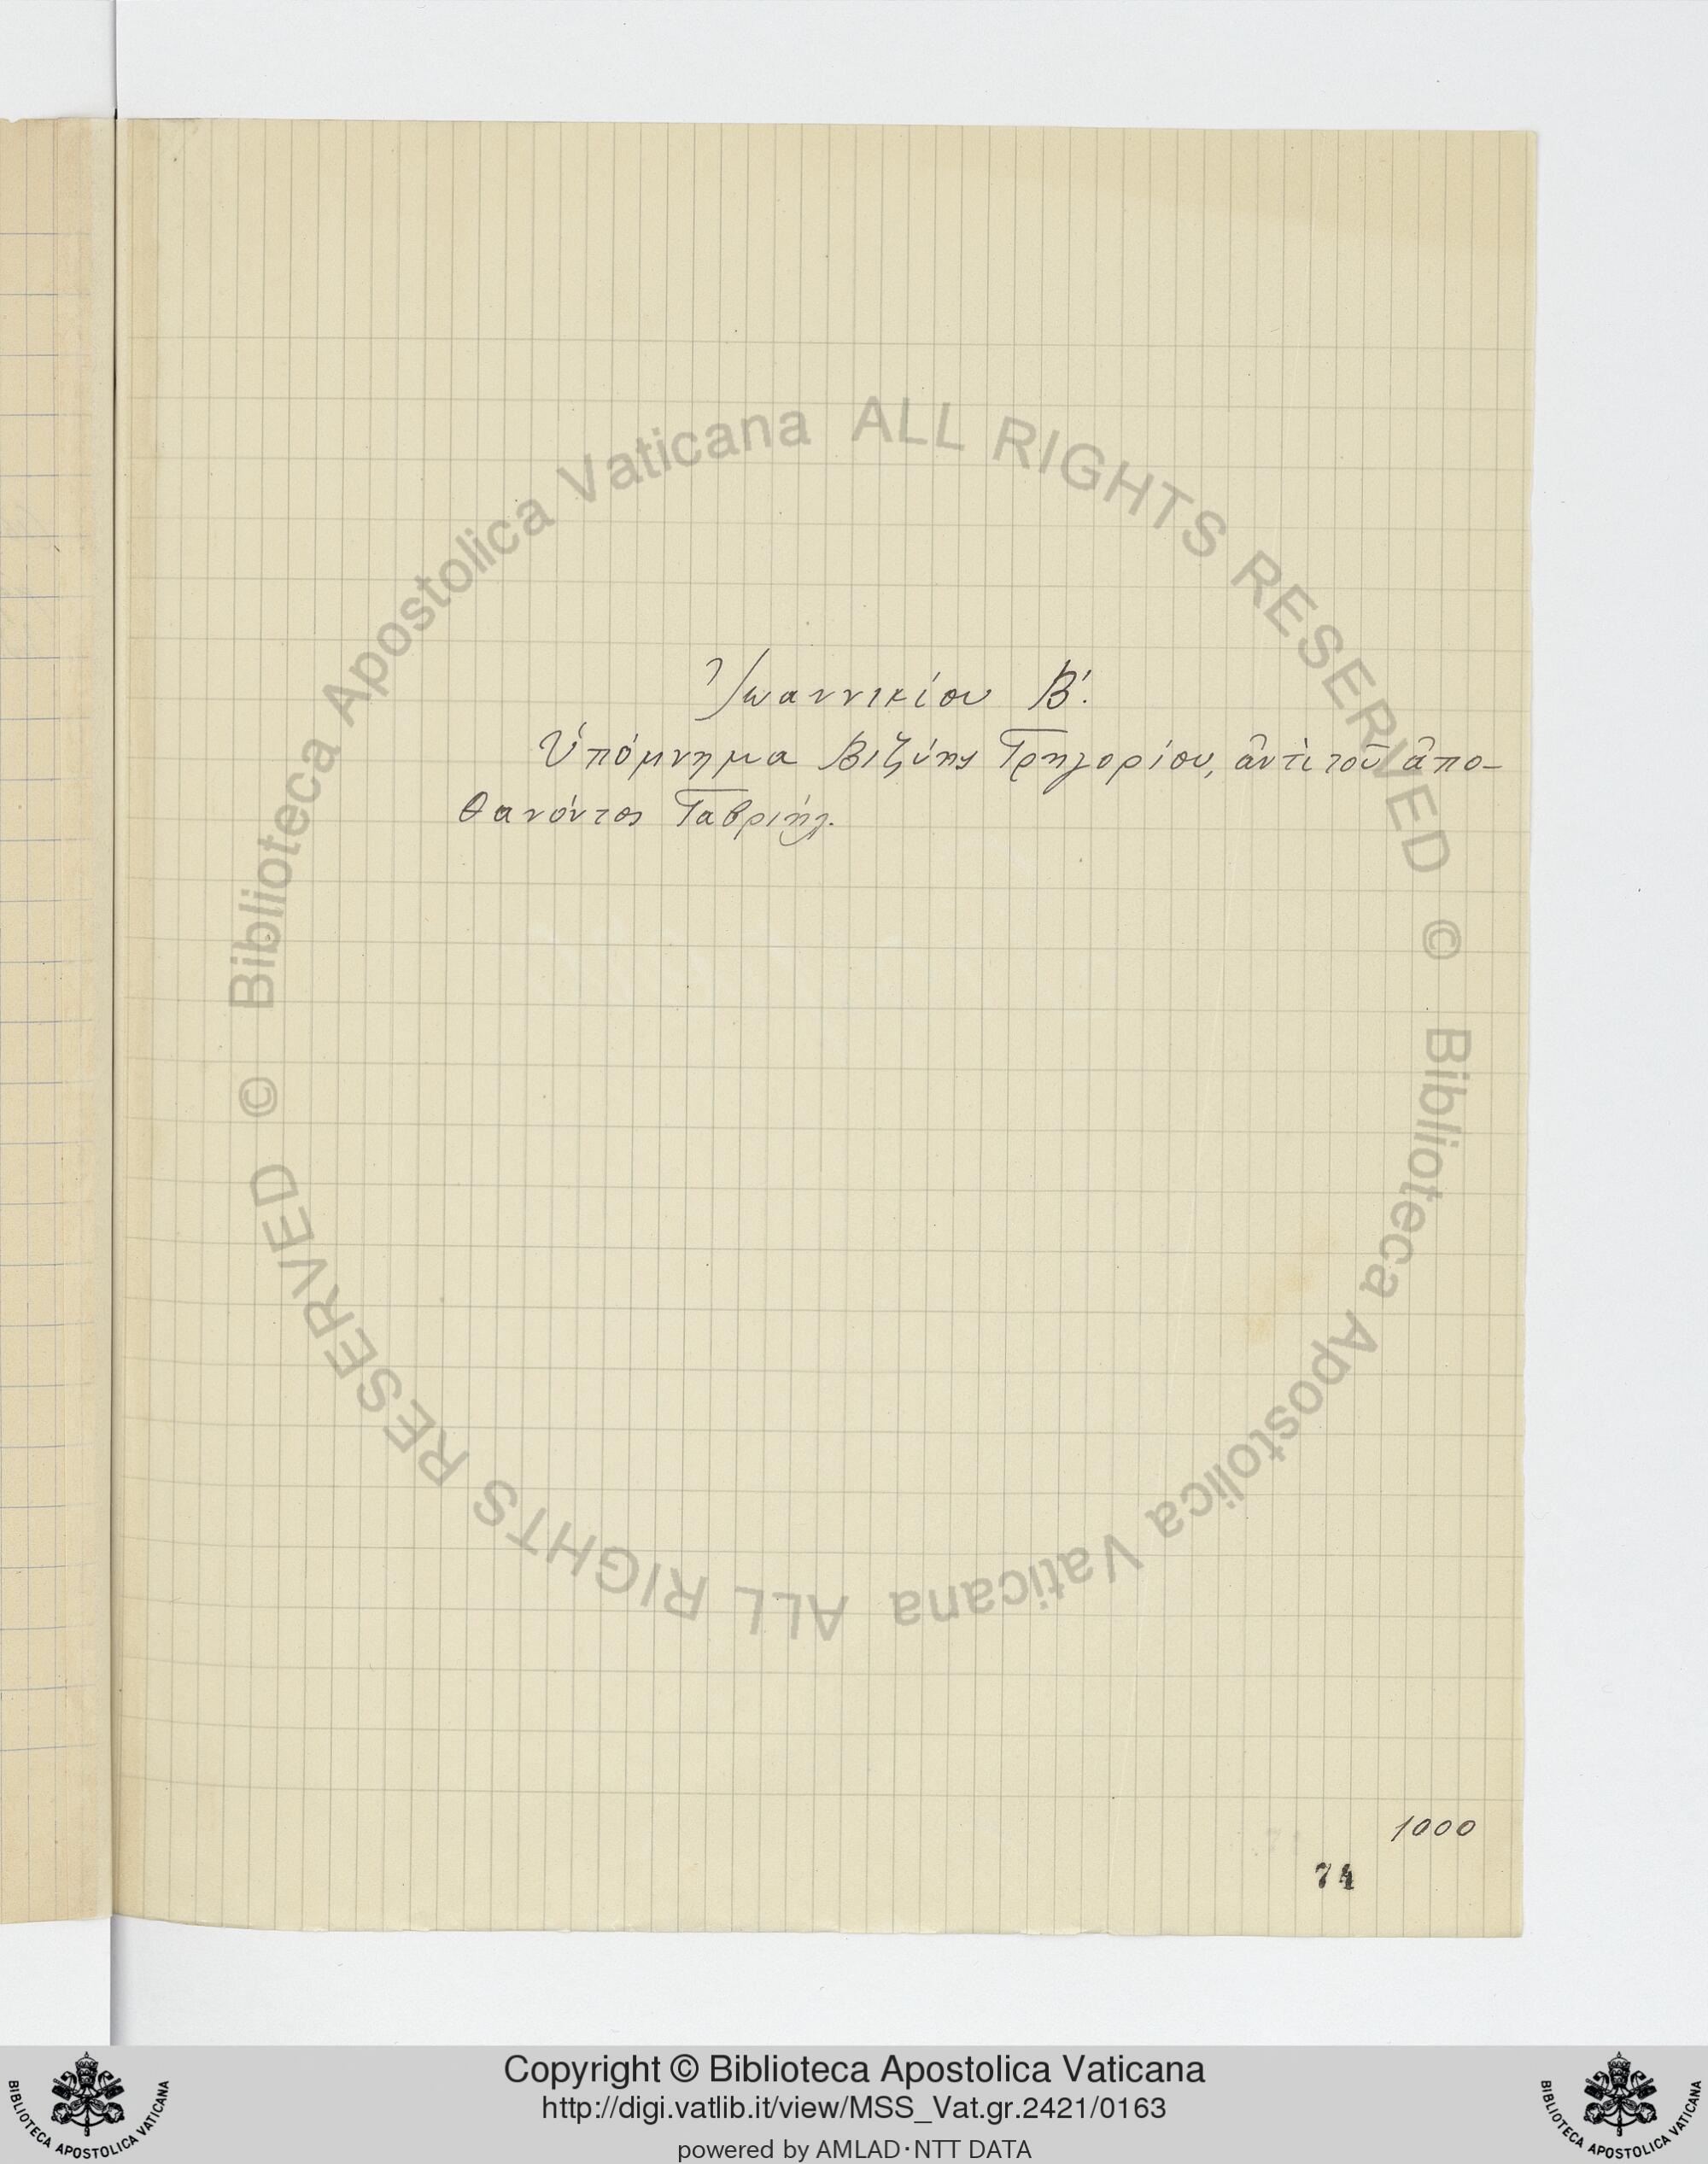 Ἰωαννικίου Β΄.
Ὑπόμνημα Βιζύης Γρηγορίου, ἀντὶ τοῦ ἀπο-
θανόντος Γαβριήλ.
1000
74
© Biblioteca Apostolica Vaticana ALL RIGHTS RESERVED
© Biblioteca Apostolica Vaticana ALL RIGHTS RESERVED
Copyright © Biblioteca Apostolica Vaticana
http://digi.vatlib.it/view/MSS_Vat.gr.2421/0163
powered by AMLAD·NTT DATA
BIBLIOTECA APOSTOLICA VATICANA
BIBLIOTECA APOSTOLICA VATICANA